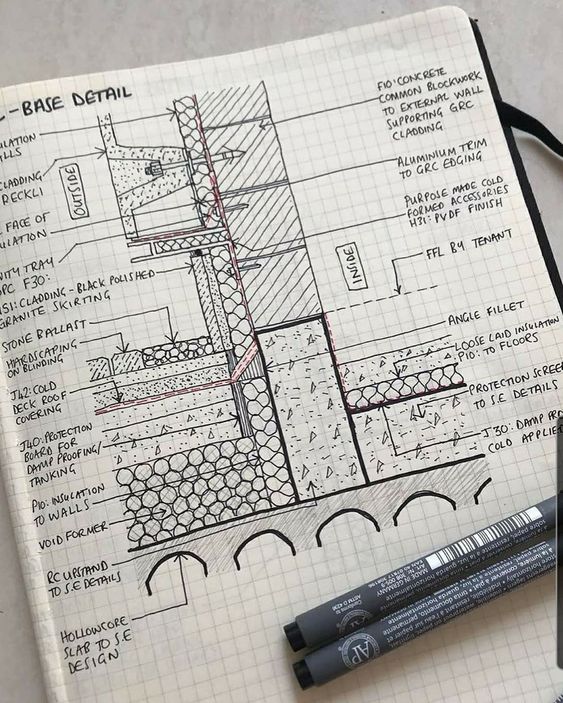 -BASE DETAIL
F10: CONCRETE
COMMON BLOCKWORK
TO EXTERNAL WALL
SUPPORTING GRC
CLADDING
ALUMINIUM TRIM
TO GRC EDGING
PURPOSE MADE COLD
FORMED ACCESSORIES
H31: PVDF FINISH
FFL BY TENANT
ANGLE FILLET
LOOSE LAID INSULATION
P10: TO FLOORS
PROTECTION SCREE
TO S.E DETAILS
J30: DAMP PRO
COLD APPLIE
OUTSIDE
INSIDE
ULATION
LLS
CLADDING
RECKLI
FACE OF
ULATION
ITY TRAY
PC F30:
S1: CLADDING - BLACK POLISHED
GRANITE SKIRTING
STONE BALLAST
HARDSCAPING
ON BLINDING
J42: COLD
DECK ROOF
COVERING
J40: PROTECTION
BOARD FOR
DAMP PROOFING/
TANKING
P10: INSULATION
TO WALLS
VOID FORMER
RC UPSTAND
TO S.E DETAILS
HOLLOWCORE
SLAB TO S.E
DESIGN
MADE IN GERMANY
Conforms to
ASTM D 4236
AP